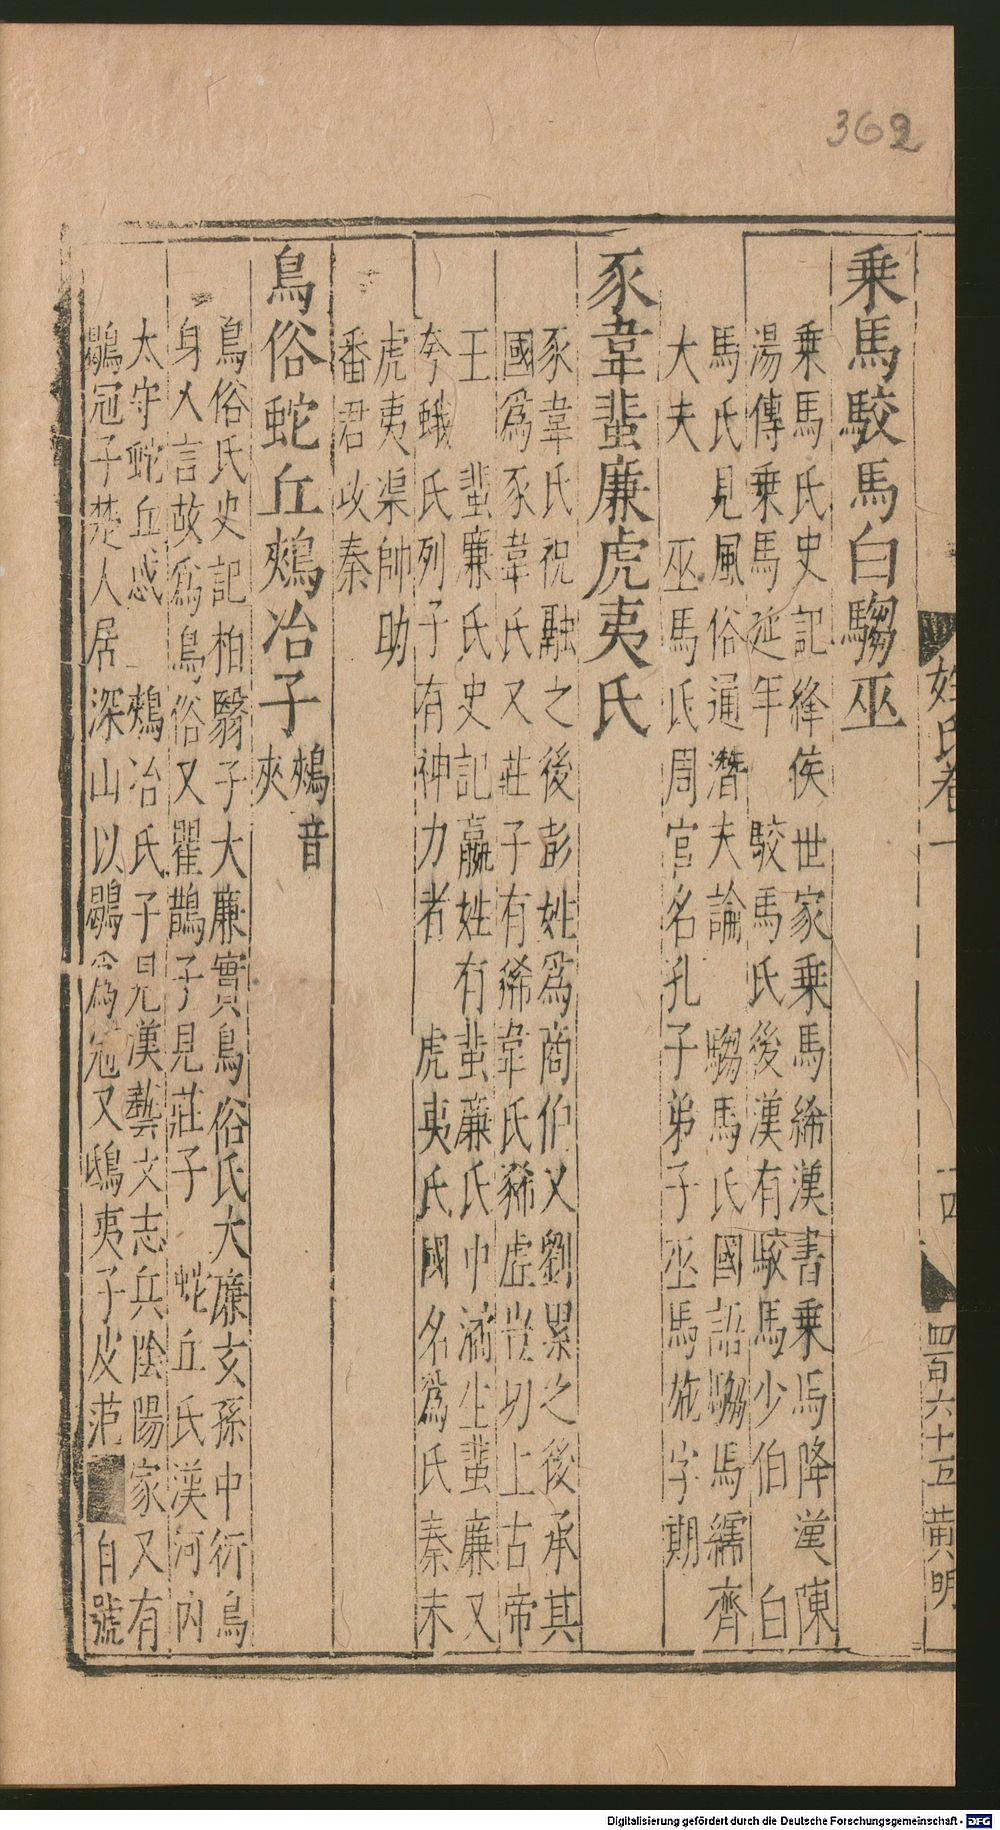 362
姓氏卷一
十四
四百六十五 黃明
乘馬駮馬白騶巫
乘馬氏史記絳侯世家乘馬絺漢書乘馬降漢陳
湯傳乘馬延年 駮馬氏後漢有駮馬少伯 白
馬氏見風俗通潛夫論 騶馬氏國語騶馬繻齊
大夫 巫馬氏周官名孔子弟子巫馬施字期
豕韋蜚廉虎夷氏
豕韋氏祝融之後彭姓爲商伯又劉累之後承其
國爲豕韋氏又莊子有狶韋氏豨虛豈切上古帝
王 蜚廉氏史記嬴姓有蜚廉氏中潏生蜚廉又
夸蛾氏列子有神力者 虎夷氏國名爲氏秦末
虎夷渠帥助
番君攻秦
鳥俗蛇丘鵊冶子
鵊音
夾
鳥俗氏史記柏翳子大廉實鳥俗氏大廉玄孫中衍鳥
身人言故爲鳥俗又瞿鵲子見莊子 蛇丘氏漢河內
太守蛇丘惑 鵊冶氏子見漢藝文志兵陰陽家又有
鶡冠子楚人居深山以鶡爲冠又鴟夷子皮范 自號
Digitalisierung gefördert durch die Deutsche Forschungsgemeinschaft - DFG